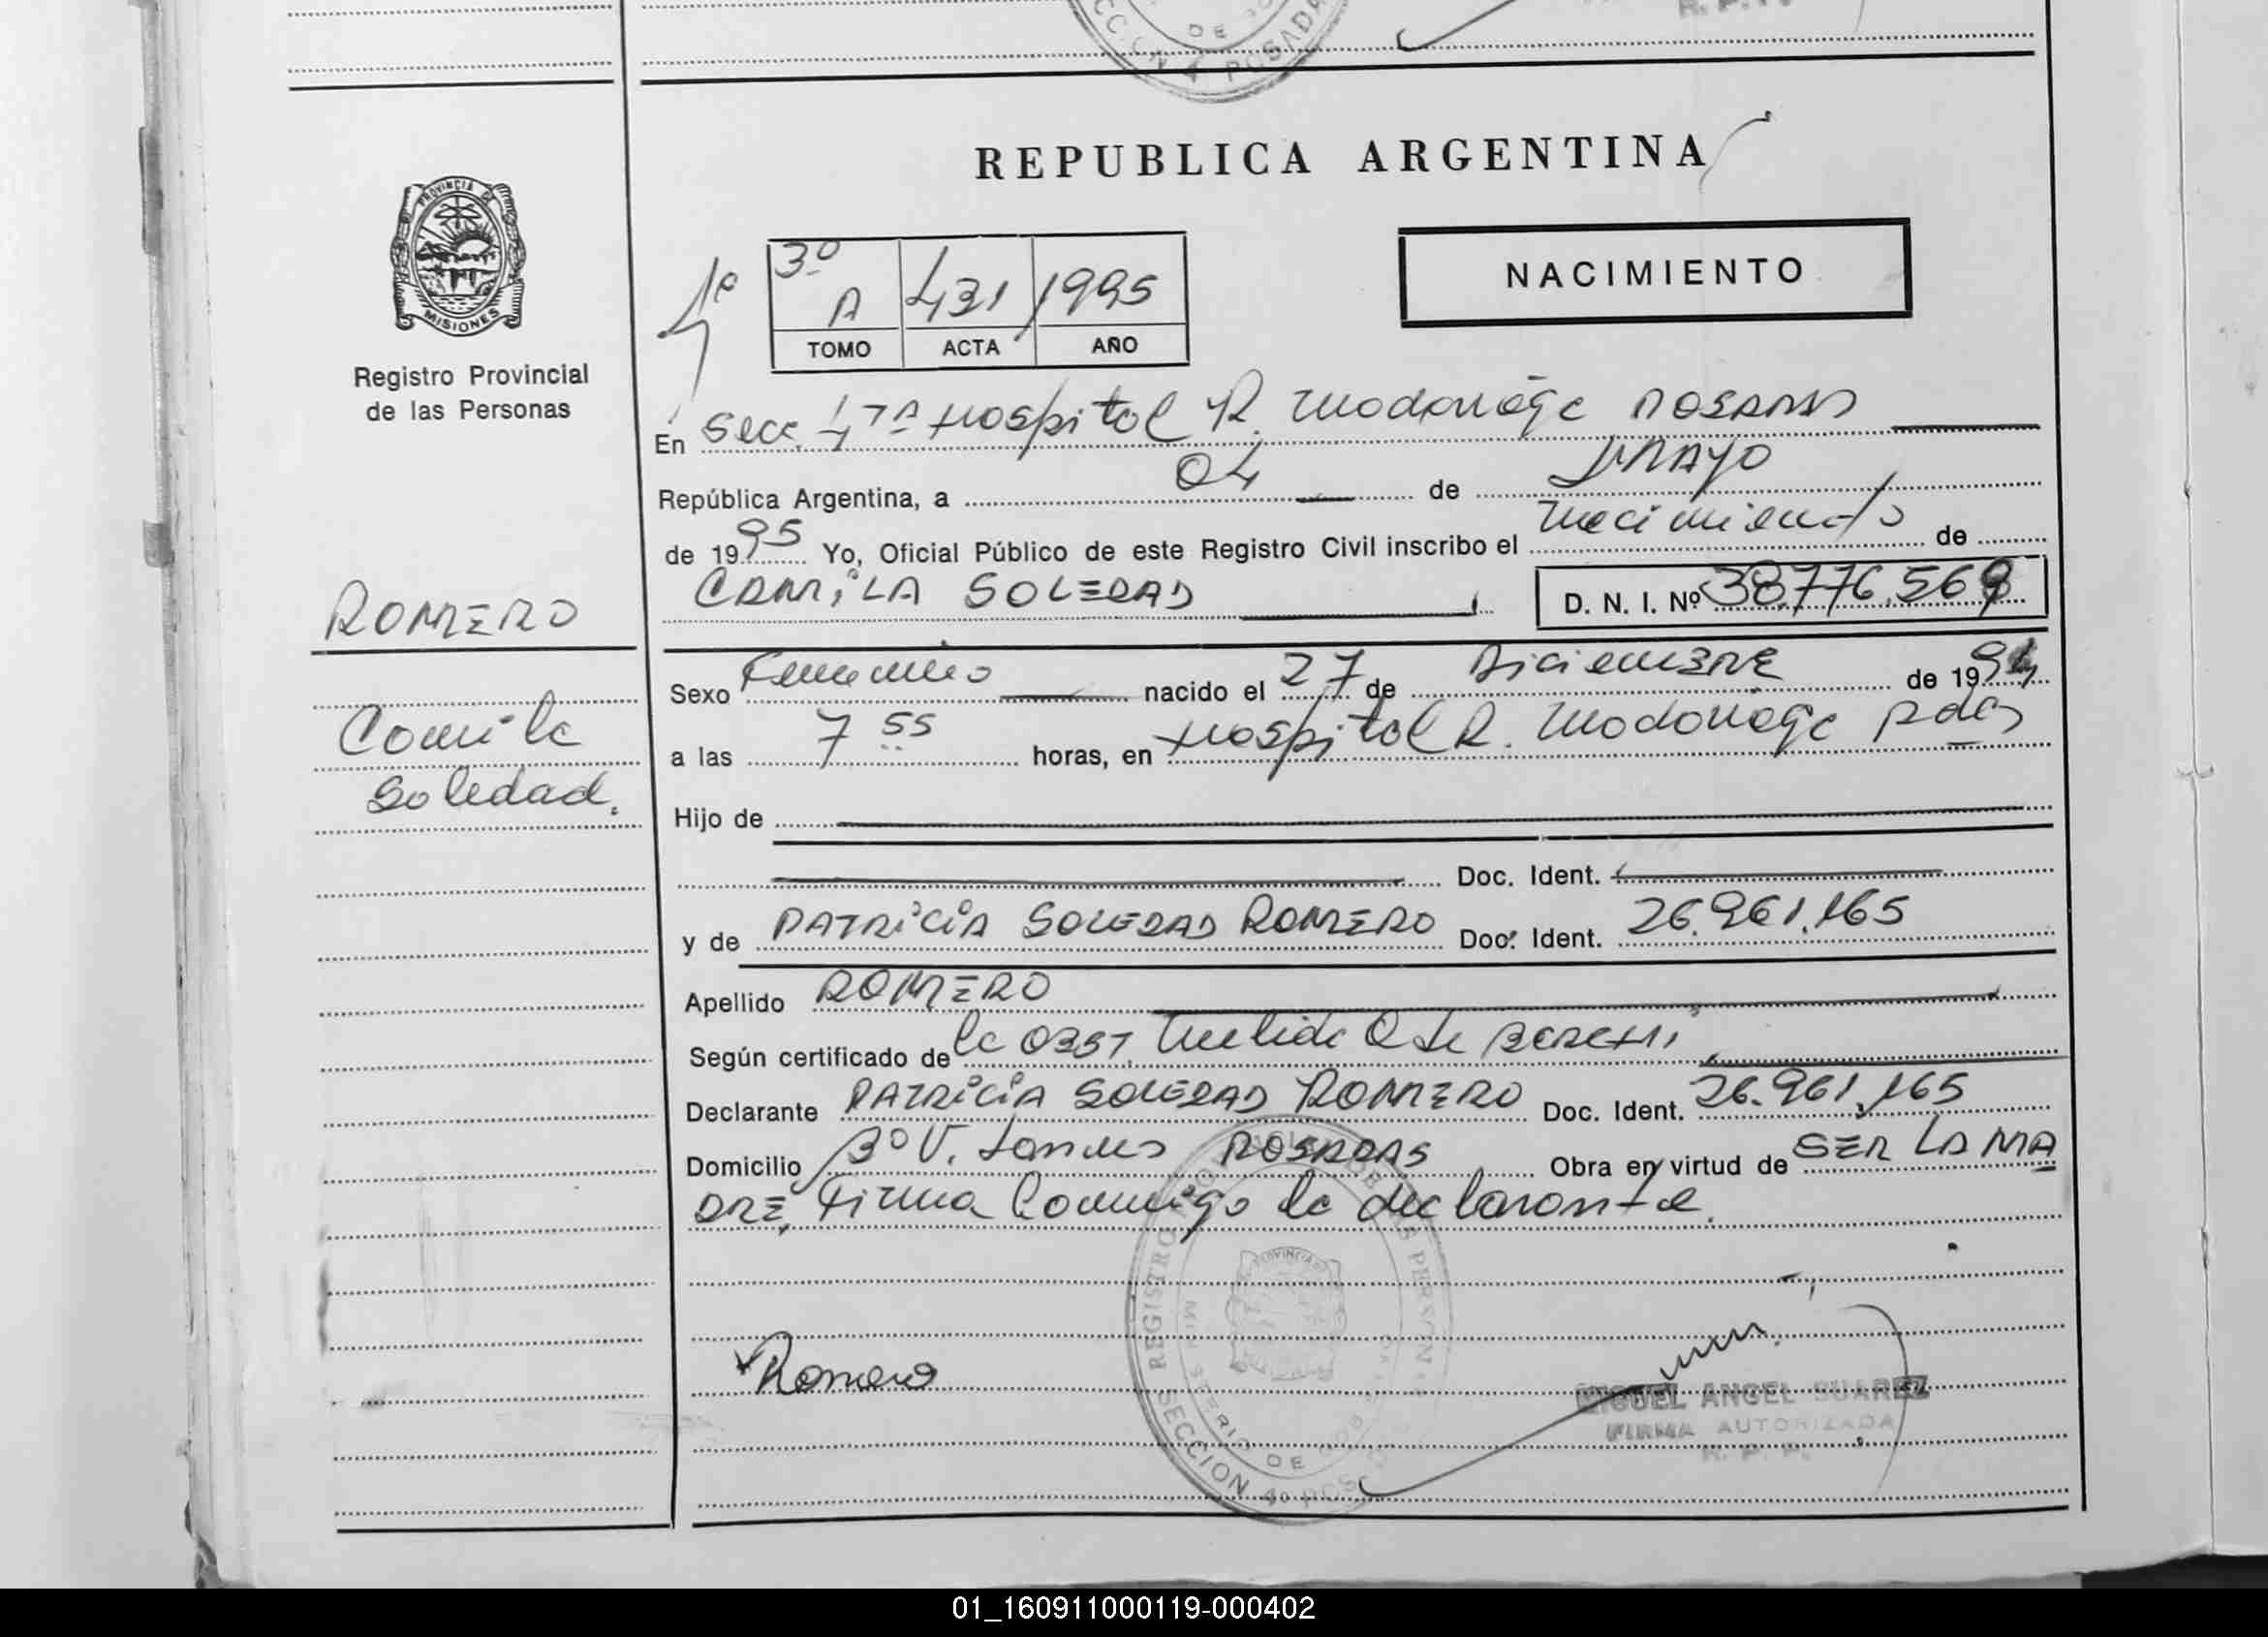 DE
SECCION 4º POSADA
R. P. P.
REPUBLICA ARGENTINA
PROVINCIA DE
MISIONES
Registro Provincial
de las Personas
NACIMIENTO
3º
A 431 1995
TOMO ACTA AÑO
En Secc. 4TA Hospital R. Madariaga POSADAS
República Argentina, a 04 de MAYO
de 1995 Yo, Oficial Público de este Registro Civil inscribo el nacimiento de
CAMILA SOLEDAD D. N. I. Nº 38.776.568
ROMERO
Camila
Soledad.
Sexo Femenino nacido el 27 de DiciemBRE de 1994
a las 7 55 horas, en Hospital R. Madariaga Pdas
Hijo de
Doc. Ident.
y de PATRICIA SOLEDAD ROMERO Doc. Ident. 26.961.165
Apellido ROMERO
Según certificado de la
Declarante PATRICIA SOLEDAD ROMERO Doc. Ident. 26.961.165
Domicilio POSADAS Obra en virtud de SER LA MA
DRE, Firma Conmigo la declarante.
REGISTRO PROVINCIAL DE LAS PERSONAS
MINISTERIO DE GOB
PROVINCIA
SECCION 4º POSAD
Romero
MIGUEL ANGEL SUAREZ
FIRMA AUTORIZADA
R. P. P.
01_160911000119-000402